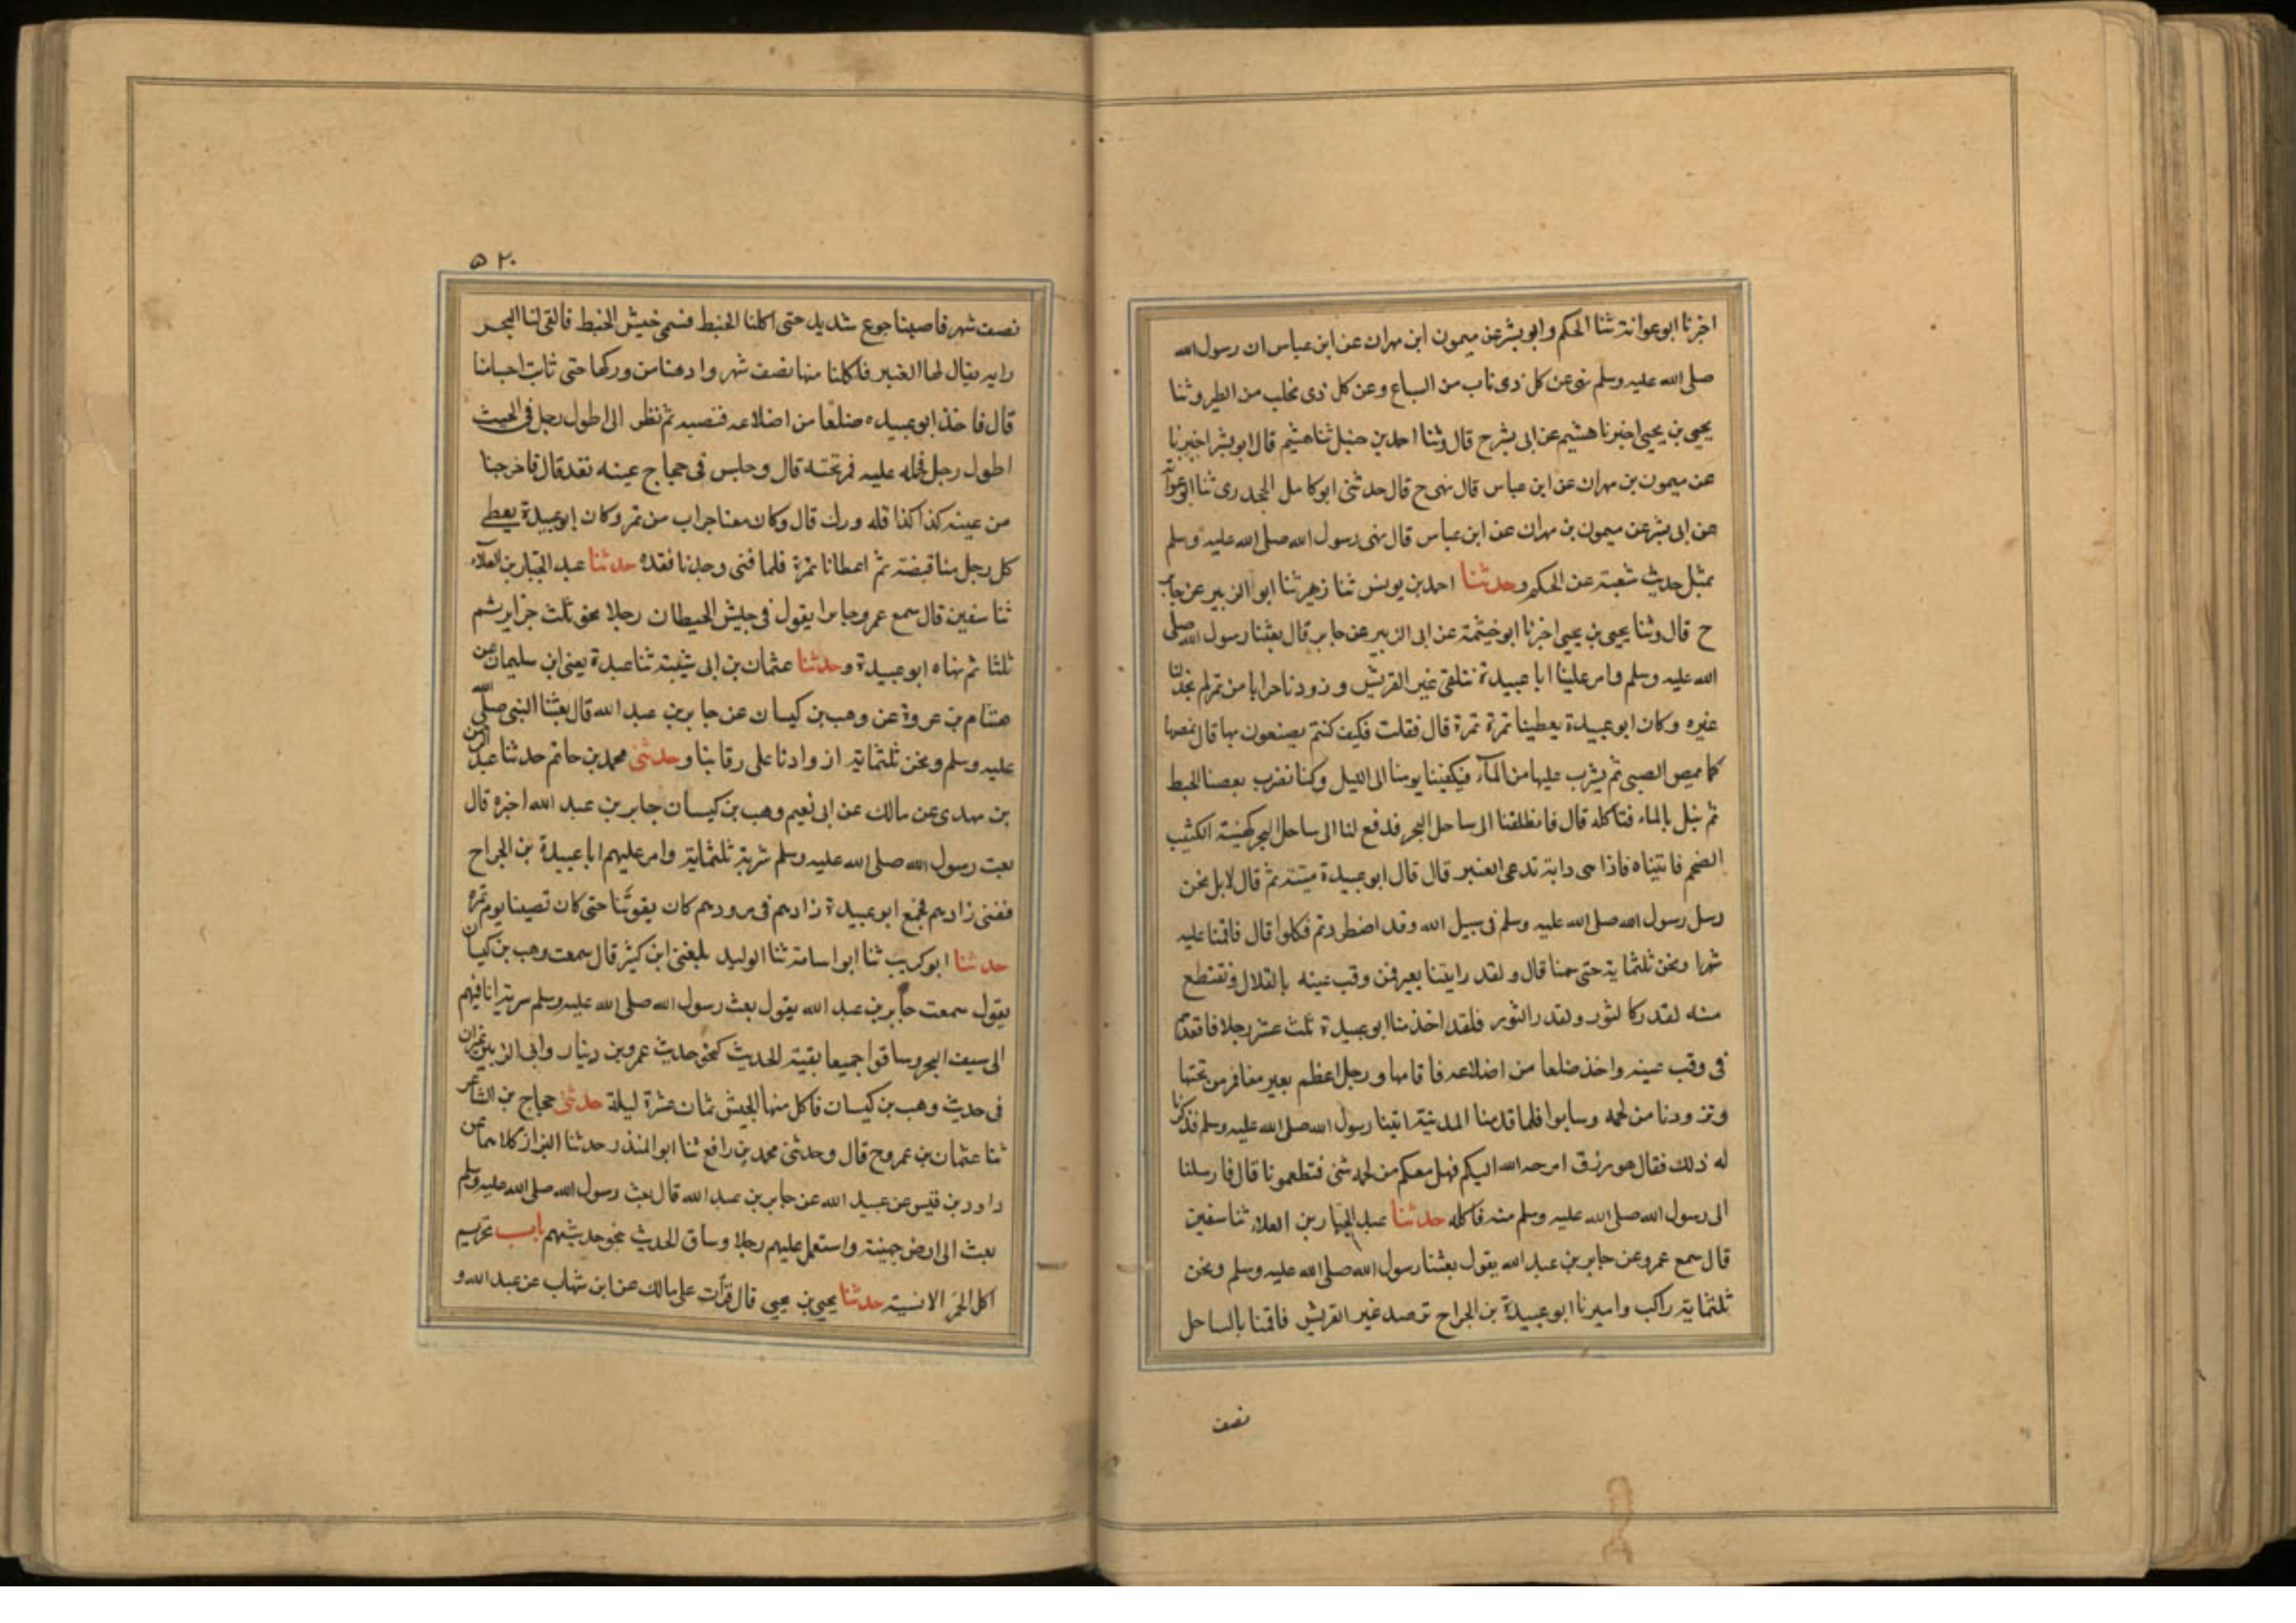 اخبرنا ابو عوانة ثنا الحكم وابو بشر عن ميمون ابن مهران عن ابن عباس ان رسول الله
صلى الله عليه وسلم نهى عن كل ذى ناب من السباع وعن كل ذى مخلب من الطير وثنا
يحيى بن يحيى اخبرنا هشيم عن ابى بشر ح قال وثنا احمد بن حنبل ثنا هشيم قال ابو بشر اخبرنا
عن ميمون بن مهران عن ابن عباس قال نهى ح قال حدثنى ابو كامل الجحدرى ثنا ابو عوانة
عن ابى بشر عن ميمون بن مهران عن ابن عباس قال نهى رسول الله صلى الله عليه وسلم
بمثل حديث شعبة عن الحكم وحدثنا احمد بن يونس ثنا زهير ثنا ابو الزبير عن جابر
ح قال وثنا يحيى بن يحيى اخبرنا ابو خيثمة عن ابى الزبير عن جابر قال بعثنا رسول الله صلى
الله عليه وسلم وامر علينا ابا عبيدة نتلقى عير القريش وزودنا جرابا من تمر لم يجد لنا
غيره وكان ابو عبيدة يعطينا تمرة تمرة قال فقلت فكيف كنتم تصنعون بها قال نمصها
كما يمص الصبى ثم يشرب عليها من الماء فيكفينا يومنا الى الليل وكنا نضرب بعصنا الخبط
ثم نبل بالماء فتاكله قال فانطلقنا الى ساحل البحر فدفع لنا الى ساحل البحر كهيئة الكثيب
الضخم فاتيناه فاذا هى دابة تدعى العنبر قال قال ابو عبيدة ميتة ثم قال لا بل نحن
رسل رسول الله صلى الله عليه وسلم فى سبيل الله وقد اضطررتم فكلوا قال فاقمنا عليه
شهرا ونحن ثلثماية حتى سمنا قال ولقد رايتنا بعيرفن وقب عينه بالقلال ونقتطع
منه لقدر كالثور ولقدر الثور فلقد اخذ منا ابو عبيدة ثلث عشر رجلا فاقعدنا
فى وقب عينه واخذ ضلعا من اضلاعه فاقامها ورجل اعظم بعير معنا فمر من تحتها
وتزودنا من لحمه وسابوا فلما قدمنا المدينة اتينا رسول الله صلى الله عليه وسلم فذكرنا
له ذلك فقال هو رزق اخرجه الله اليكم فهل معكم من لحمه شئ فتطعمونا قال فارسلنا
الى رسول الله صلى الله عليه وسلم منه فاكله حدثنا عبد الجبار بن العلاء ثنا سفين
قال سمع عمرو عن جابر بن عبد الله يقول بعثنا رسول الله صلى الله عليه وسلم ونحن
ثلثماية راكب واميرنا ابو عبيدة بن الجراح نرصد عير القريش فاقمنا بالساحل
نصف
٥٢٠
نصف شهر فاصبنا جوع شديد حتى اكلنا الخبط فسمى جيش الخبط فالقى لنا البحر
دابة يقال لها العنبر فاكلنا منها نصف شهر وادهنا من وركها حتى ثابت اجسامنا
قال فاخذ ابو عبيده ضلعا من اضلاعه فنصبه ثم نظر الى اطول رجل فى الجيش
اطول رجل فحمله عليه فمر تحته قال وجلس فى حجاج عينه نفد قال فاخرجنا
من عينه كذا كذا قله ورك قال وكان معنا جراب من تمر وكان ابو عبيدة يعطى
كل رجل منا قبضة ثم اعطانا تمرة فلما فنى وجدنا فقده حدثنا عبد الجبار بن العلاء
ثنا سفين قال سمع عمرو جابرا يقول فى جيش الخبط ان رجلا نحو ثلث جزاير ثم
ثلثا ثم نهاه ابو عبيدة وحدثنا عثمان بن ابى شيبة ثنا عبدة يعنى ابن سليمان عن
هشام بن عروة عن وهب بن كيسان عن جابر بن عبد الله قال بعثنا النبى صلى الله
عليه وسلم ونحن ثلثماية ازوادنا على رقابنا وحدثنى محمد بن حاتم حدثنا عبد الرحمن
بن مهدى عن مالك عن ابى نعيم وهب بن كيسان جابر بن عبد الله اخبره قال
بعث رسول الله صلى الله عليه وسلم سرية ثلثماية وامر عليهم ابا عبيدة بن الجراح
ففنى زادهم فجمع ابو عبيدة زادهم فى مزودهم كان يقوتنا حتى كان تصيبنا يوم تمرة
حدثنا ابو كريب ثنا ابو اسامة ثنا الوليد بلغنى ابن كثير قال سمعت وهب بن كيسان
يقول سمعت جابر بن عبد الله يقول بعث رسول الله صلى الله عليه وسلم سرية انا فيهم
الى سيف البحر وساقوا جميعا بقية الحديث كنحو حديث عمرو بن دينار وابى الزبير غير ان
فى حديث وهب بن كيسان فاكل منها الجيش ثمان عشرة ليلة حدثنى حجاج بن الشاعر
ثنا عثمان بن عمر وح قال وحدثنى محمد بن رافع ثنا ابو المنذر حدثنا القزاز كلاهما عن
داود بن قيس عن عبيد الله عن جابر بن عبد الله قال بعث رسول الله صلى الله عليه وسلم
بعث الى ارض جهينة واستعمل عليهم رجلا وساق الحديث بنحو حديثهم باب تحريم
اكل الحمر الانسية حدثنا يحيى بن يحيى قال قرأت على مالك عن ابن شهاب عن عبد الله و